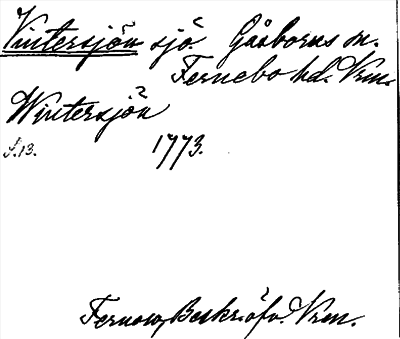 Vintersjön sjö. Gåsborns sn.
Fernebo hd. Vrm.
Wintersjön
s. 13. 1773.
Fernow, Beskr. öfv. Vrm.